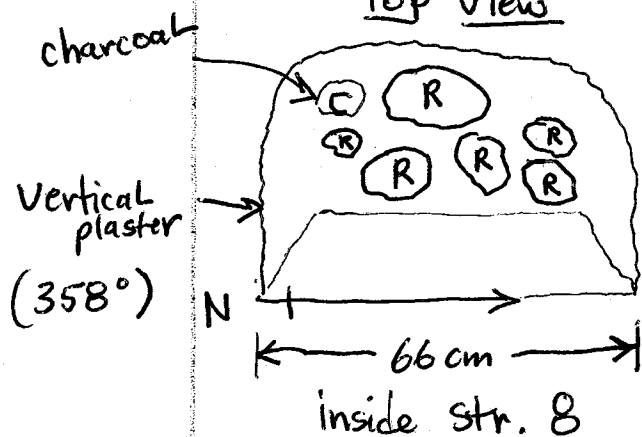 Top View
charcoal
C
R
R
R
R
R
R
Vertical
plaster
(358°)
N
66 cm
inside str. 8